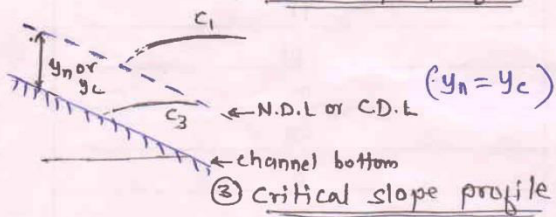 C1
yn or
yc
(yn = yc)
C3
N.D.L or C.D.L
channel bottom
③ Critical slope profile